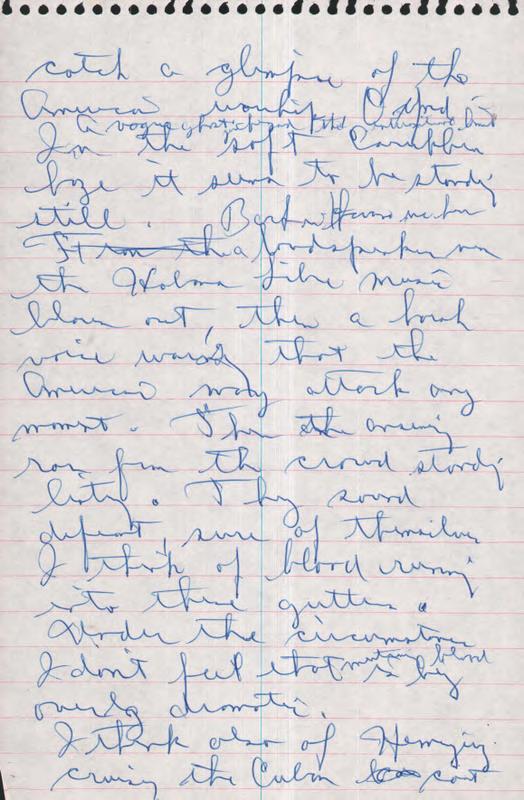 catch a glimpse of the
American warship Oxford
A vague ghost ship
In the soft Caribbean
haze it seems to be standing
still. Back in Havana
From the a loudspeaker on
the Habana Libre music
blares out, then a harsh
voice warning that the
Americans may attack any
moment. Then the answering
roar from the crowd standing
listening. They sound
defiant, sure of themselves
I think of blood running
into these gutters.
Under the circumstances
I don't feel that mentioning blood
is being
overly dramatic.
I think also of Hemingway
cruising the Cuban coast